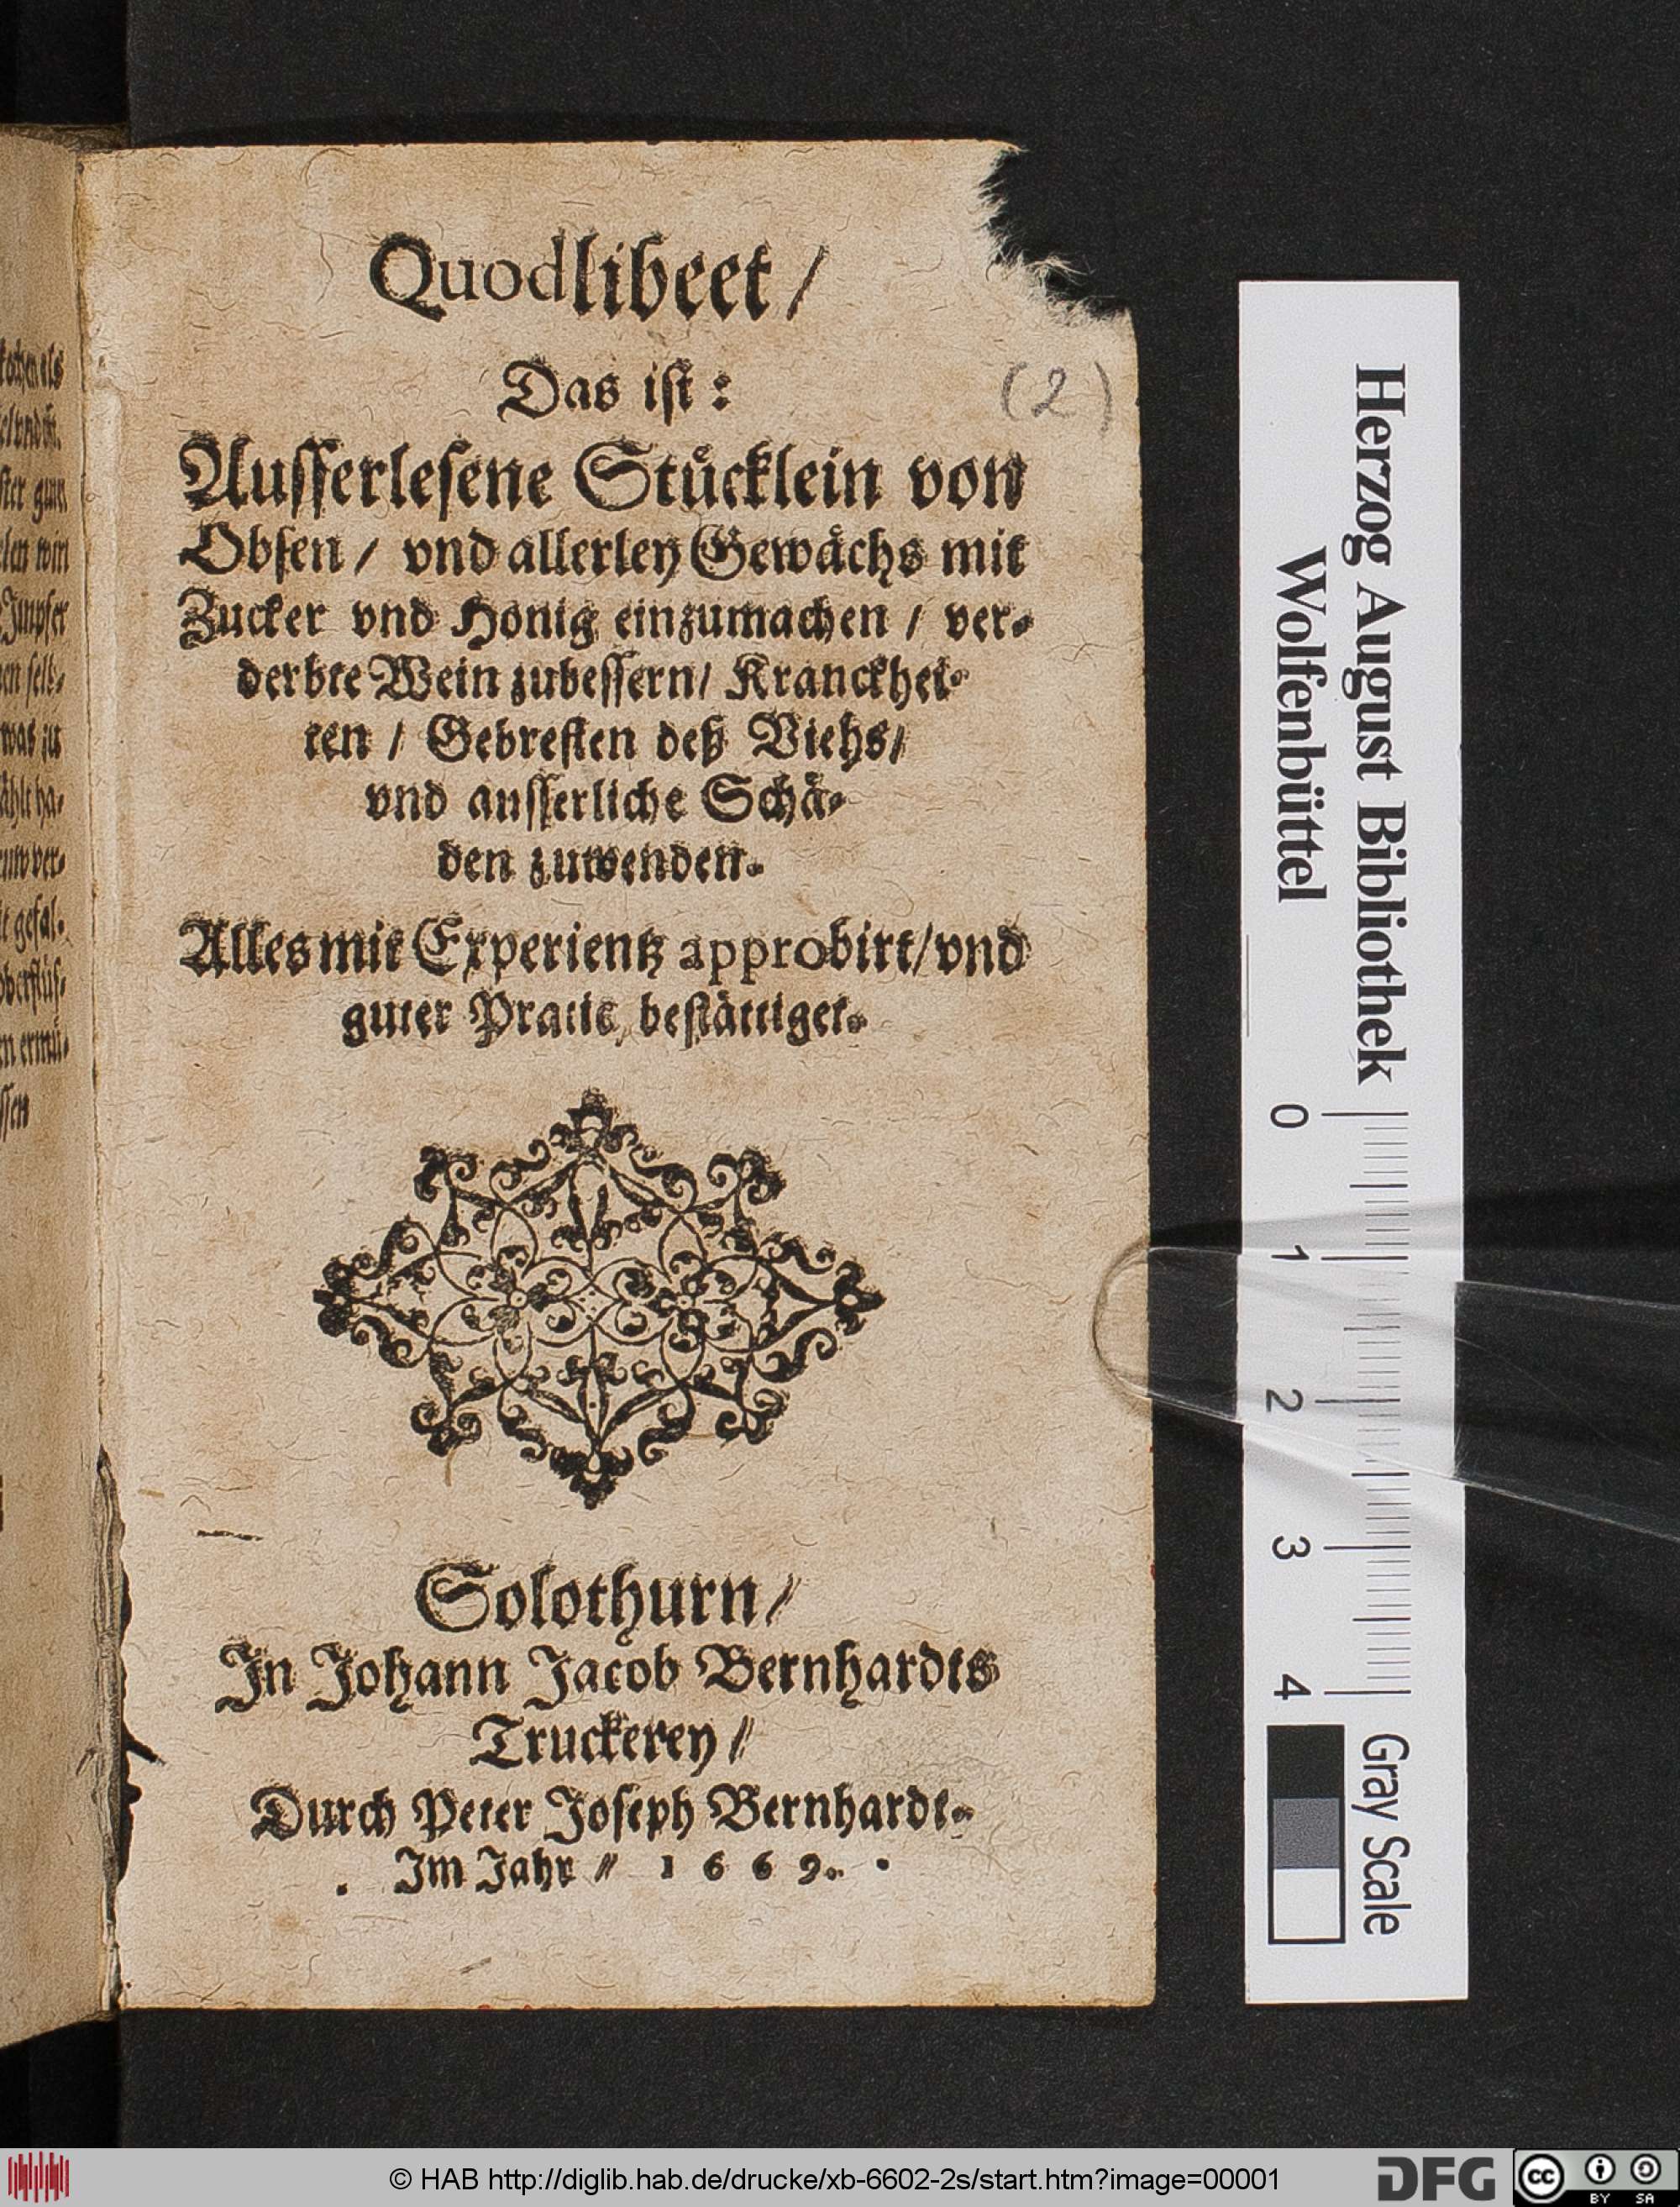 Quodlibeet /
Das ist:
(2)
Ausserlesene Stücklein von
Obsen / vnd allerley Gewächs mit
Zucker vnd Honig einzumachen / ver-
derbte Wein zubessern / Kranckhei-
ten / Gebresten deß Viehs /
vnd ausserliche Schä-
den zuwenden.
Alles mit Experientz approbirt / vnd
guter Pratic bestättiget.
Solothurn /
In Johann Jacob Bernhardts
Truckerey //
Durch Peter Joseph Bernhardt.
Im Jahr // 1669.
Herzog August Bibliothek
Wolfenbüttel
0 1 2 3 4
Gray Scale
© HAB http://diglib.hab.de/drucke/xb-6602-2s/start.htm?image=00001
DFG
cc BY SA